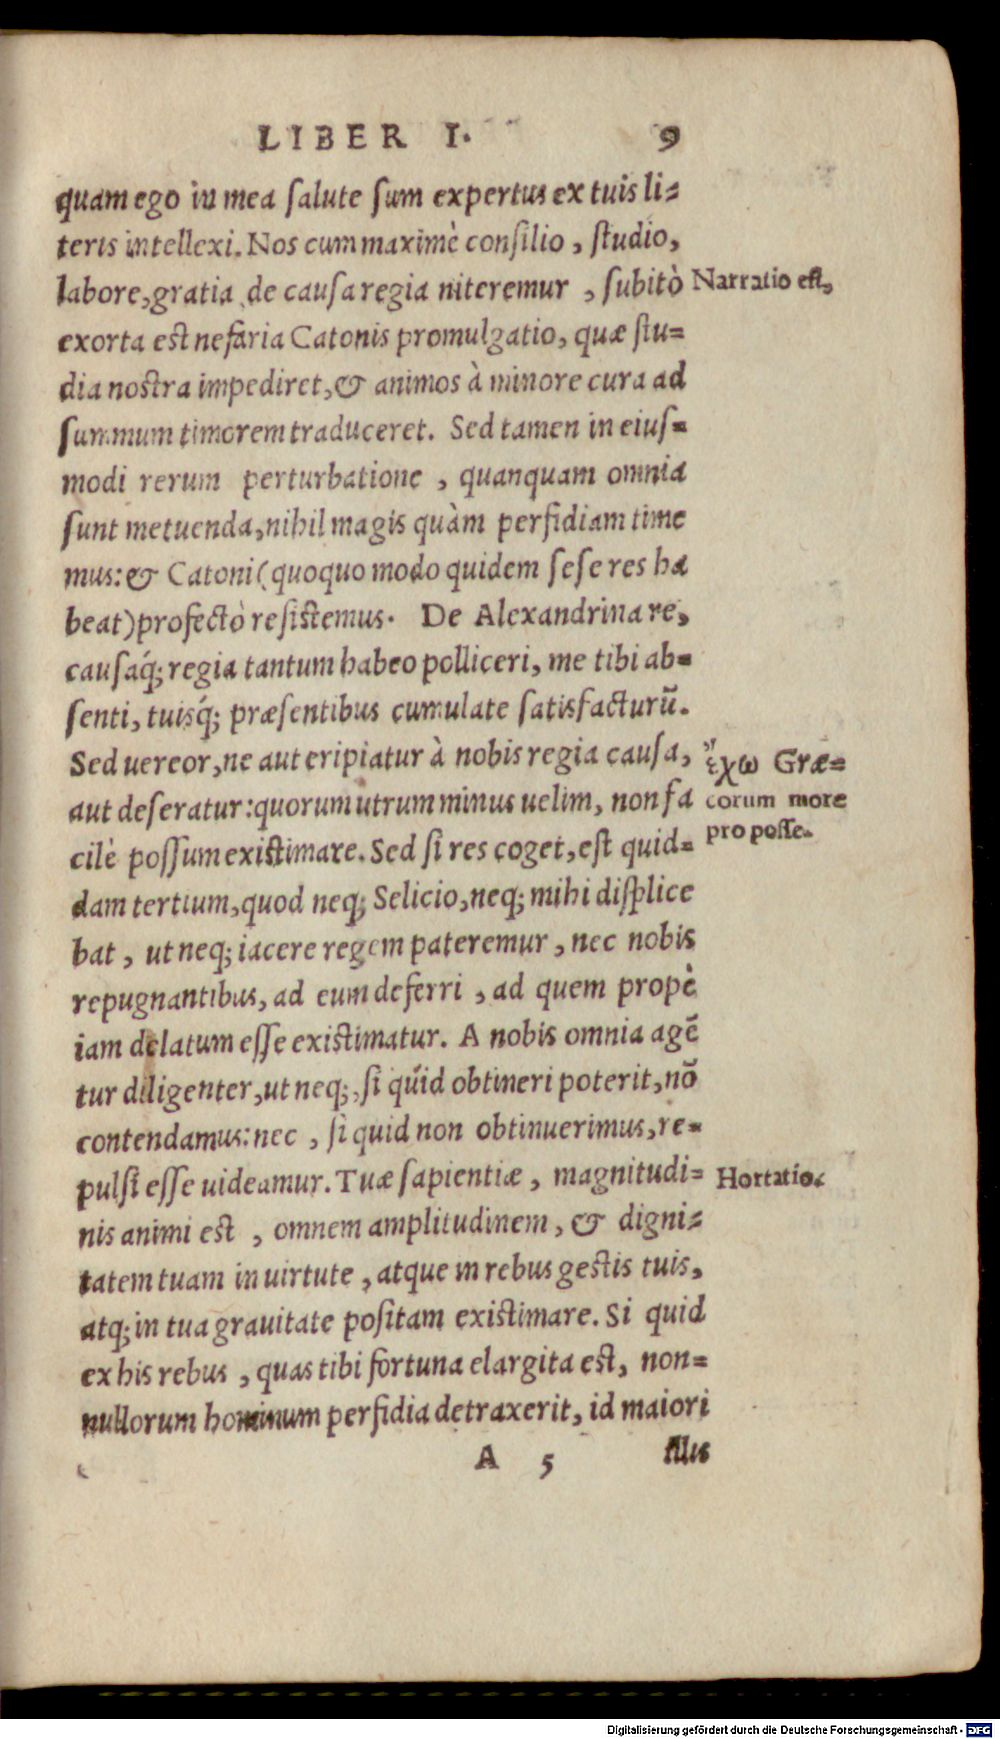 LIBER I. 9
quam ego in mea salute sum expertus ex tuis li-
teris intellexi. Nos cum maximè consilio, studio,
labore, gratia de causa regia niteremur, subitò
Narratio est,
exorta est nefaria Catonis promulgatio, quæ stu-
dia nostra impediret, & animos à minore cura ad
summum timorem traduceret. Sed tamen in eius-
modi rerum perturbatione, quanquam omnia
sunt metuenda, nihil magis quàm perfidiam time
mus: & Catoni (quoquo modo quidem sese res ha
beat) profectò resistemus. De Alexandrina re,
causaq́; regia tantum habeo polliceri, me tibi ab-
senti, tuisq́; præsentibus cumulate satisfacturũ.
Sed uereor, ne aut eripiatur à nobis regia causa,
ἔχω Græ-
aut deseratur: quorum utrum minus uelim, non fa
corum more
cilè possum existimare. Sed si res coget, est quid-
pro posse.
dam tertium, quod neq; Selicio, neq; mihi displice
bat, ut neq; iacere regem pateremur, nec nobis
repugnantibus, ad eum deferri, ad quem propè
iam delatum esse existimatur. A nobis omnia agẽ
tur diligenter, ut neq;, si quid obtineri poterit, nõ
contendamus: nec, si quid non obtinuerimus, re-
pulsi esse uideamur. Tuæ sapientiæ, magnitudi-
Hortatio.
nis animi est, omnem amplitudinem, & digni-
tatem tuam in uirtute, atque in rebus gestis tuis,
atq; in tua grauitate positam existimare. Si quid
ex his rebus, quas tibi fortuna elargita est, non-
nullorum hominum perfidia detraxerit, id maiori
A 5 illis
Digitalisierung gefördert durch die Deutsche Forschungsgemeinschaft - DFG